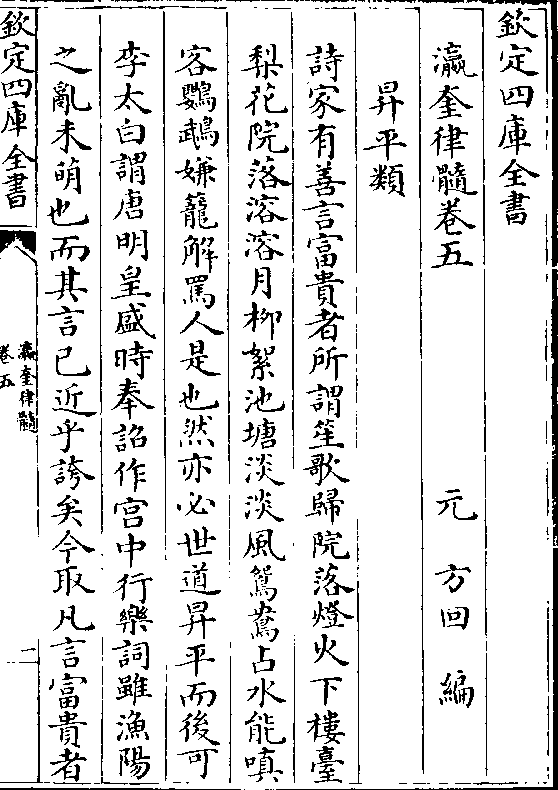 欽定四庫全書
瀛奎律髓卷五
元 方回 編
昇平類
詩家有善言富貴者所謂笙歌歸院落燈火下樓臺
梨花院落溶溶月柳絮池塘淡淡風鴛鴦占水能嗔
客鸚鵡嫌籠解罵人是也然亦必世道昇平而後可
李太白謂唐明皇盛時奉詔作宫中行樂詞雖漁陽
之亂未萌也而其言已近乎誇矣今取凡言富貴者
欽定四庫全書
瀛奎律髓
卷五
一